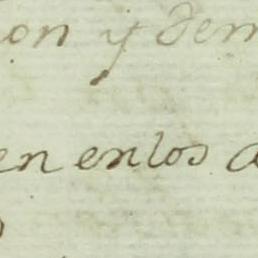 on y dem
en enlos a